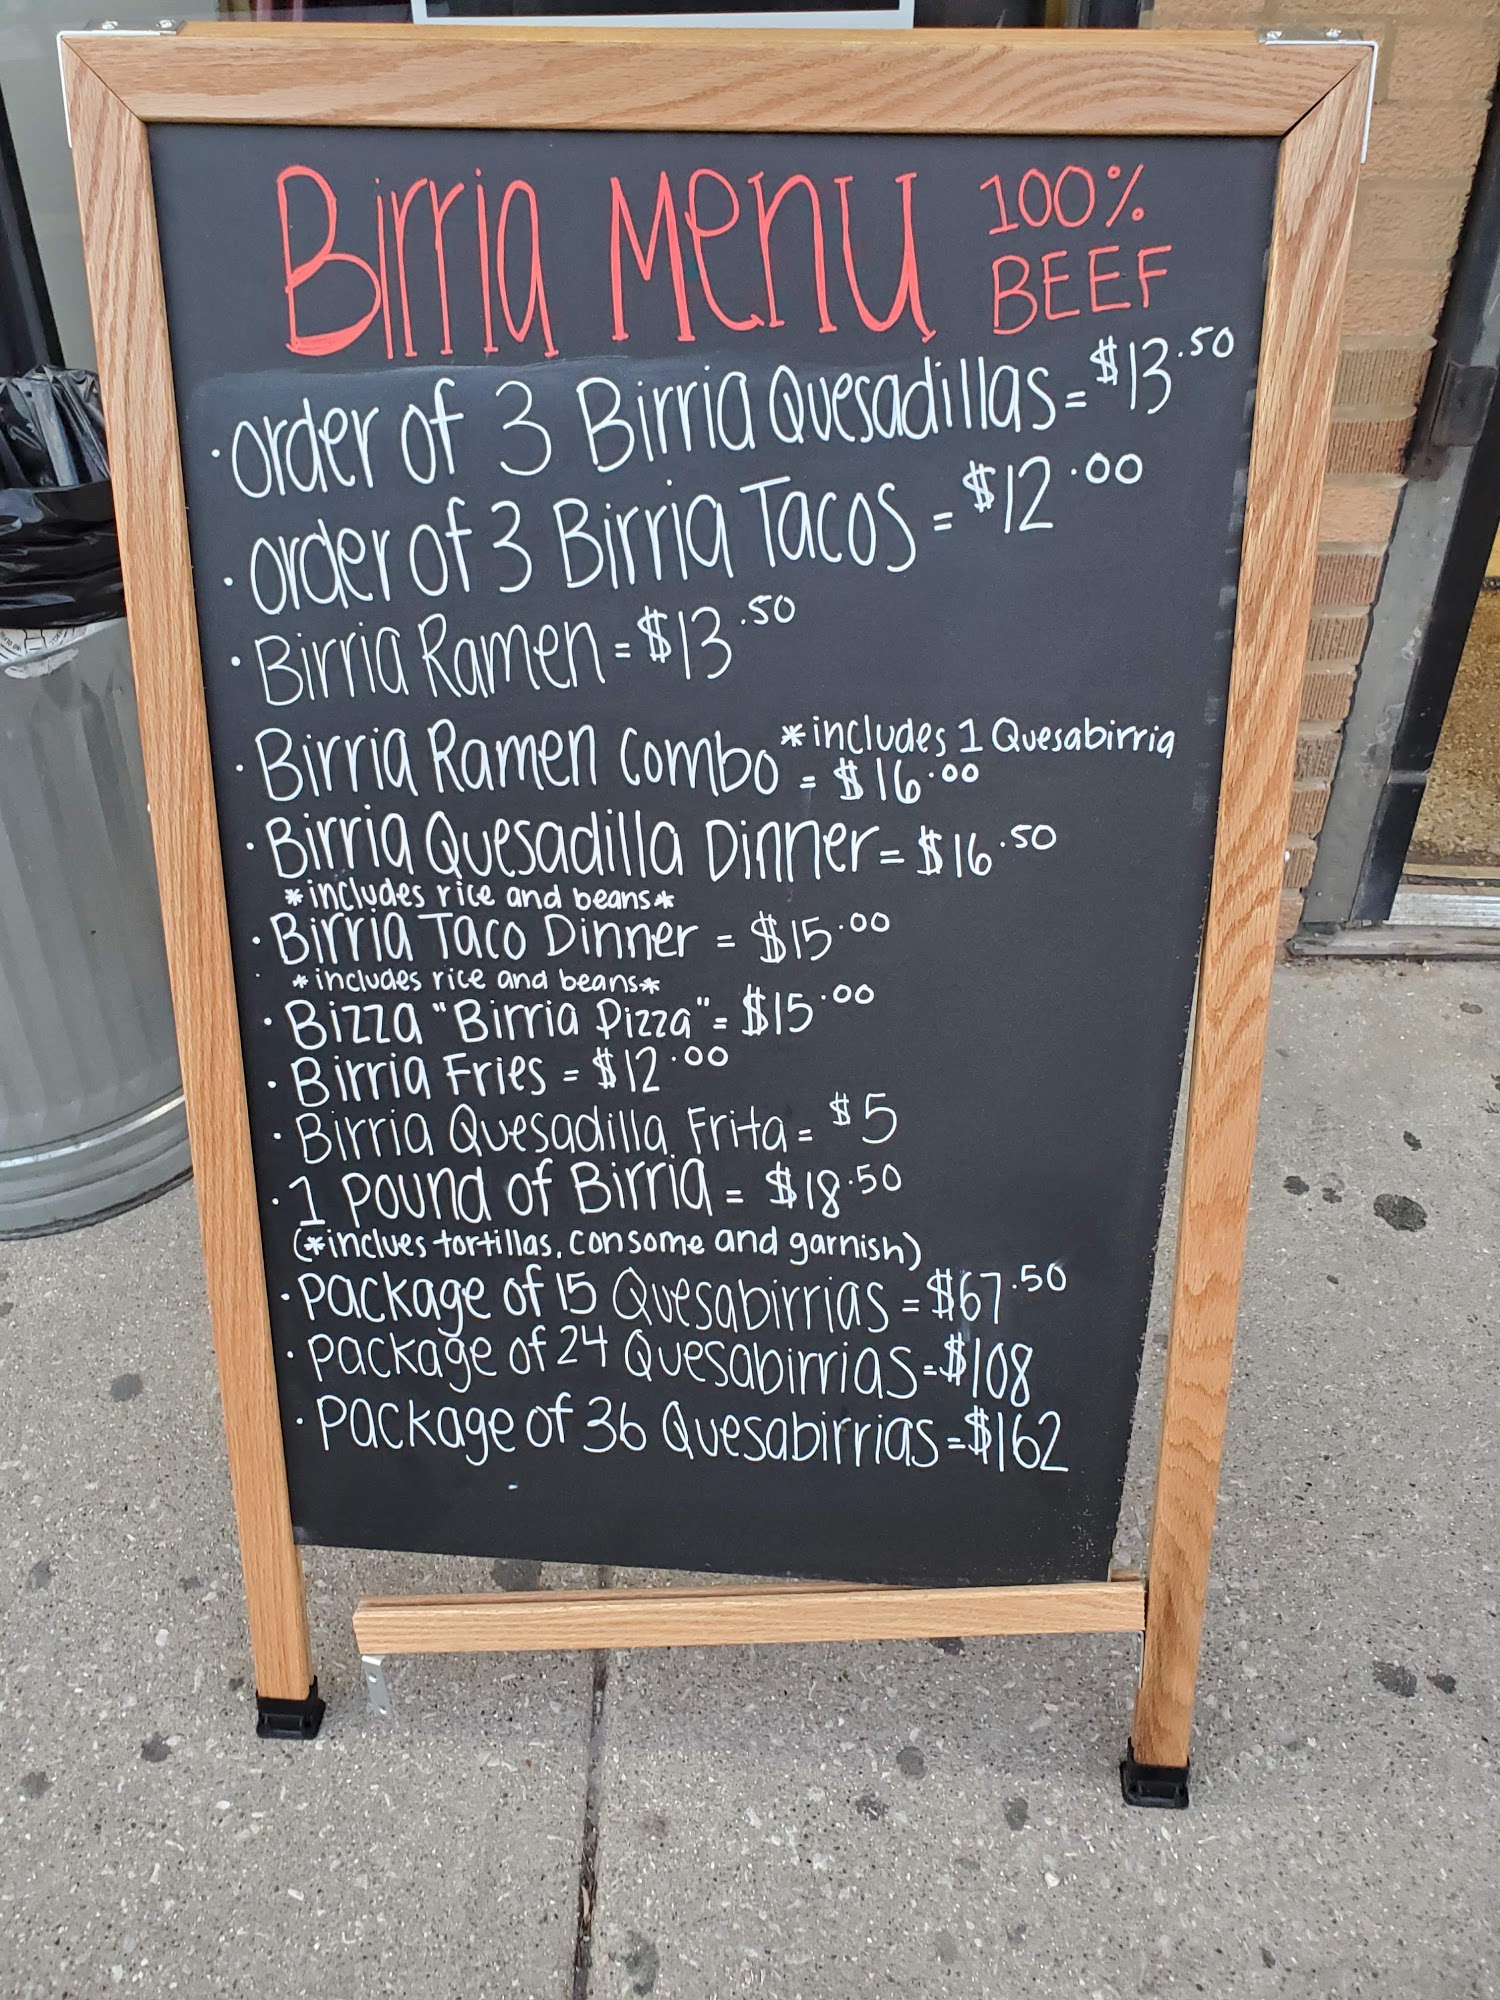 Birria Menu 100% BEEF
· order of 3 Birria Quesadillas = $13.50
· order of 3 Birria Tacos = $12.00
· Birria Ramen = $13.50
· Birria Ramen Combo *includes 1 Quesabirria = $16.00
· Birria Quesadilla Dinner = $16.50
*includes rice and beans*
· Birria Taco Dinner = $15.00
*includes rice and beans*
· Bizza "Birria Pizza" = $15.00
· Birria Fries = $12.00
· Birria Quesadilla Frita = $5
· 1 pound of Birria = $18.50
(*inclues tortillas, consome and garnish)
· package of 15 Quesabirrias = $67.50
· package of 24 Quesabirrias = $108
· package of 36 Quesabirrias = $162